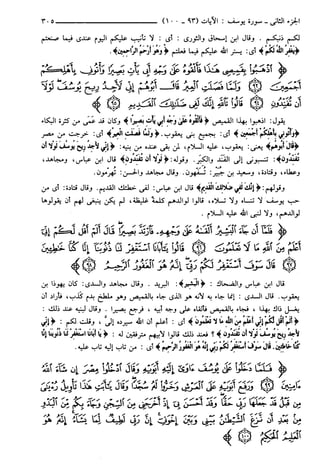 الجزء الثاني - سورة يوسف : الآيات (٩٣ - ١٠٠) ٣٠٥
لكم ذنبكم . وقال ابن إسحاق والثوري : أي : لا تأنيب عليكم اليوم عندي فيما صنعتم
﴿يَغْفِرُ اللَّهُ لَكُمْ﴾ أي : يستر الله عليكم فيما فعلتم ﴿وَهُوَ أَرْحَمُ الرَّاحِمِينَ﴾.
﴿اذْهَبُوا بِقَمِيصِي هَذَا فَأَلْقُوهُ عَلَى وَجْهِ أَبِي يَأْتِ بَصِيرًا وَأْتُونِي بِأَهْلِكُمْ
أَجْمَعِينَ ﴿٩٣﴾ وَلَمَّا فَصَلَتِ الْعِيرُ قَالَ أَبُوهُمْ إِنِّي لَأَجِدُ رِيحَ يُوسُفَ لَوْلَا
أَنْ تُفَنِّدُونِ ﴿٩٤﴾ قَالُوا تَاللَّهِ إِنَّكَ لَفِي ضَلَالِكَ الْقَدِيمِ ﴿٩٥﴾
يقول: اذهبوا بهذا القميص ﴿فَأَلْقُوهُ عَلَى وَجْهِ أَبِي يَأْتِ بَصِيرًا﴾ وكان قد عَمِيَ من كثرة البكاء
﴿وَأْتُونِي بِأَهْلِكُمْ أَجْمَعِينَ﴾ أي : بجميع بني يعقوب. ﴿وَلَمَّا فَصَلَتِ الْعِيرُ﴾ أي: خرجت من مصر
﴿قَالَ أَبُوهُمْ﴾ يعني: يعقوب، عليه السلام، لمن بقي عنده من بنيه: ﴿إِنِّي لَأَجِدُ رِيحَ يُوسُفَ لَوْلَا أَنْ
تُفَنِّدُونِ﴾: تنسبوني إلى الفَنَد والكِبَر. وقوله: ﴿لَوْلَا أَنْ تُفَنِّدُونِ﴾ قال ابن عباس، ومجاهد،
وعطاء، وقتادة، وسعيد بن جُبير: تُسَفِّهون. وقال مجاهد والحسن: تُهرِّمون.
وقولهم: ﴿إِنَّكَ لَفِي ضَلَالِكَ الْقَدِيمِ﴾ قال ابن عباس: لفي خطئك القديم. وقال قتادة: أي من
حب يوسف لا تنساه ولا تسلاه، قالوا لوالدهم كلمةً غليظة، لم يكن ينبغي لهم أن يقولوها
لوالدهم، ولا لنبي الله عليه السلام .
﴿فَلَمَّا أَنْ جَاءَ الْبَشِيرُ أَلْقَاهُ عَلَى وَجْهِهِ فَارْتَدَّ بَصِيرًا قَالَ أَلَمْ أَقُلْ لَكُمْ إِنِّي
أَعْلَمُ مِنَ اللَّهِ مَا لَا تَعْلَمُونَ ﴿٩٦﴾ قَالُوا يَا أَبَانَا اسْتَغْفِرْ لَنَا ذُنُوبَنَا إِنَّا كُنَّا خَاطِئِينَ
﴿٩٧﴾ قَالَ سَوْفَ أَسْتَغْفِرُ لَكُمْ رَبِّي إِنَّهُ هُوَ الْغَفُورُ الرَّحِيمُ ﴿٩٨﴾
قال ابن عباس والضحاك : ﴿الْبَشِيرُ﴾: البريد . وقال مجاهد والسدي: كان يهوذا بن
يعقوب. قال السدي : إنما جاء به لأنه هو الذي جاء بالقميص وهو ملطخ بدم كذب، فأراد أن
يغسل ذاك بهذا ، فجاء بالقميص فألقاه على وجه أبيه ، فرجع بصيرا . وقال لبنيه عند ذلك :
﴿أَلَمْ أَقُلْ لَكُمْ إِنِّي أَعْلَمُ مِنَ اللَّهِ مَا لَا تَعْلَمُونَ﴾ أي : أعلم أن الله سيرده إليَّ، وقلت لكم : ﴿إِنِّي
لَأَجِدُ رِيحَ يُوسُفَ لَوْلَا أَنْ تُفَنِّدُونِ﴾ ؟ فعند ذلك قالوا لأبيهم مترفقين له : ﴿يَا أَبَانَا اسْتَغْفِرْ لَنَا ذُنُوبَنَا إِنَّا
كُنَّا خَاطِئِينَ. قَالَ سَوْفَ أَسْتَغْفِرُ لَكُمْ رَبِّي إِنَّهُ هُوَ الْغَفُورُ الرَّحِيمُ﴾ أي : من تاب إليه تاب عليه.
﴿فَلَمَّا دَخَلُوا عَلَى يُوسُفَ آوَى إِلَيْهِ أَبَوَيْهِ وَقَالَ ادْخُلُوا مِصْرَ إِنْ شَاءَ اللَّهُ
آمِنِينَ ﴿٩٩﴾ وَرَفَعَ أَبَوَيْهِ عَلَى الْعَرْشِ وَخَرُّوا لَهُ سُجَّدًا وَقَالَ يَا أَبَتِ هَذَا تَأْوِيلُ رُؤْيَايَ
مِنْ قَبْلُ قَدْ جَعَلَهَا رَبِّي حَقًّا وَقَدْ أَحْسَنَ بِي إِذْ أَخْرَجَنِي مِنَ السِّجْنِ وَجَاءَ بِكُمْ مِنَ الْبَدْوِ
مِنْ بَعْدِ أَنْ نَزَغَ الشَّيْطَانُ بَيْنِي وَبَيْنَ إِخْوَتِي إِنَّ رَبِّي لَطِيفٌ لِمَا يَشَاءُ إِنَّهُ هُوَ
الْعَلِيمُ الْحَكِيمُ ﴿١٠٠﴾